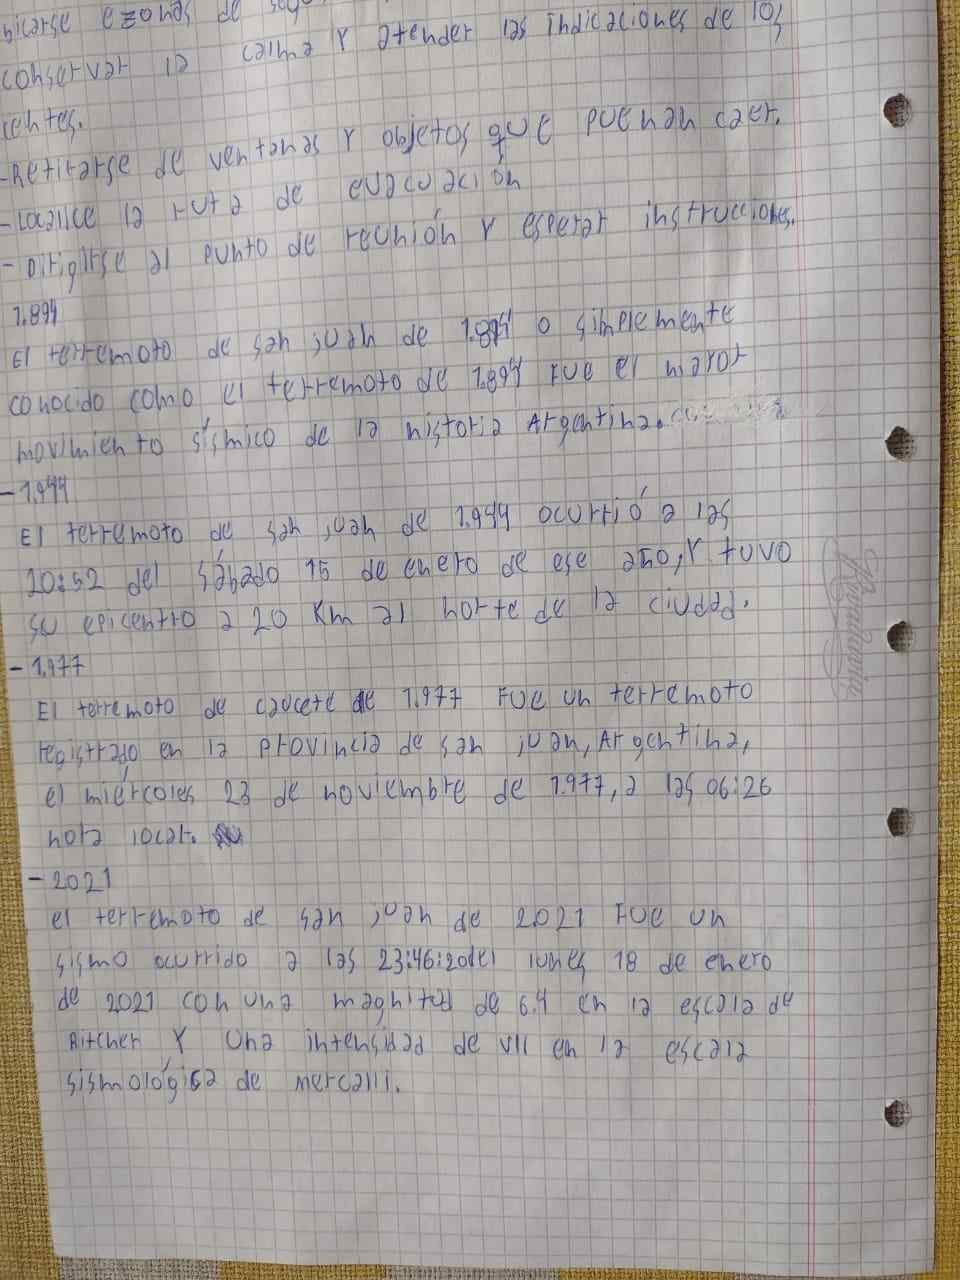 bicarse e zonas de segu
conservar la calma y atender las indicaciones de los
centes.
-Retirarse de ventanas y objetos que puenan caer.
-Localice la ruta de evacuación
-Dirigirse al punto de reunión y esperar instrucciones.
1.894
El terremoto de san juan de 1.894 o simplemente
conocido como el terremoto de 1.894 fue el mayor
movimiento sísmico de la historia Argentina.
-1.944
El terremoto de san juan de 1.944 ocurrió a las
20:52 del sábado 15 de enero de ese año, y tuvo
su epicentro a 20 Km al norte de la ciudad.
-1.977
El terremoto de caucete de 1.977 fue un terremoto
registrado en la provincia de san juan, Argentina,
el miércoles 23 de noviembre de 1.977, a las 06:26
hora local.
-2021
el terremoto de san juan de 2.021 fue un
sismo ocurrido a las 23:46:20 del lunes 18 de enero
de 2021 con una magnitud de 6.4 en la escala de
Ritcher y una intensidad de VII en la escala
sismológica de mercalli.
Rivadavia